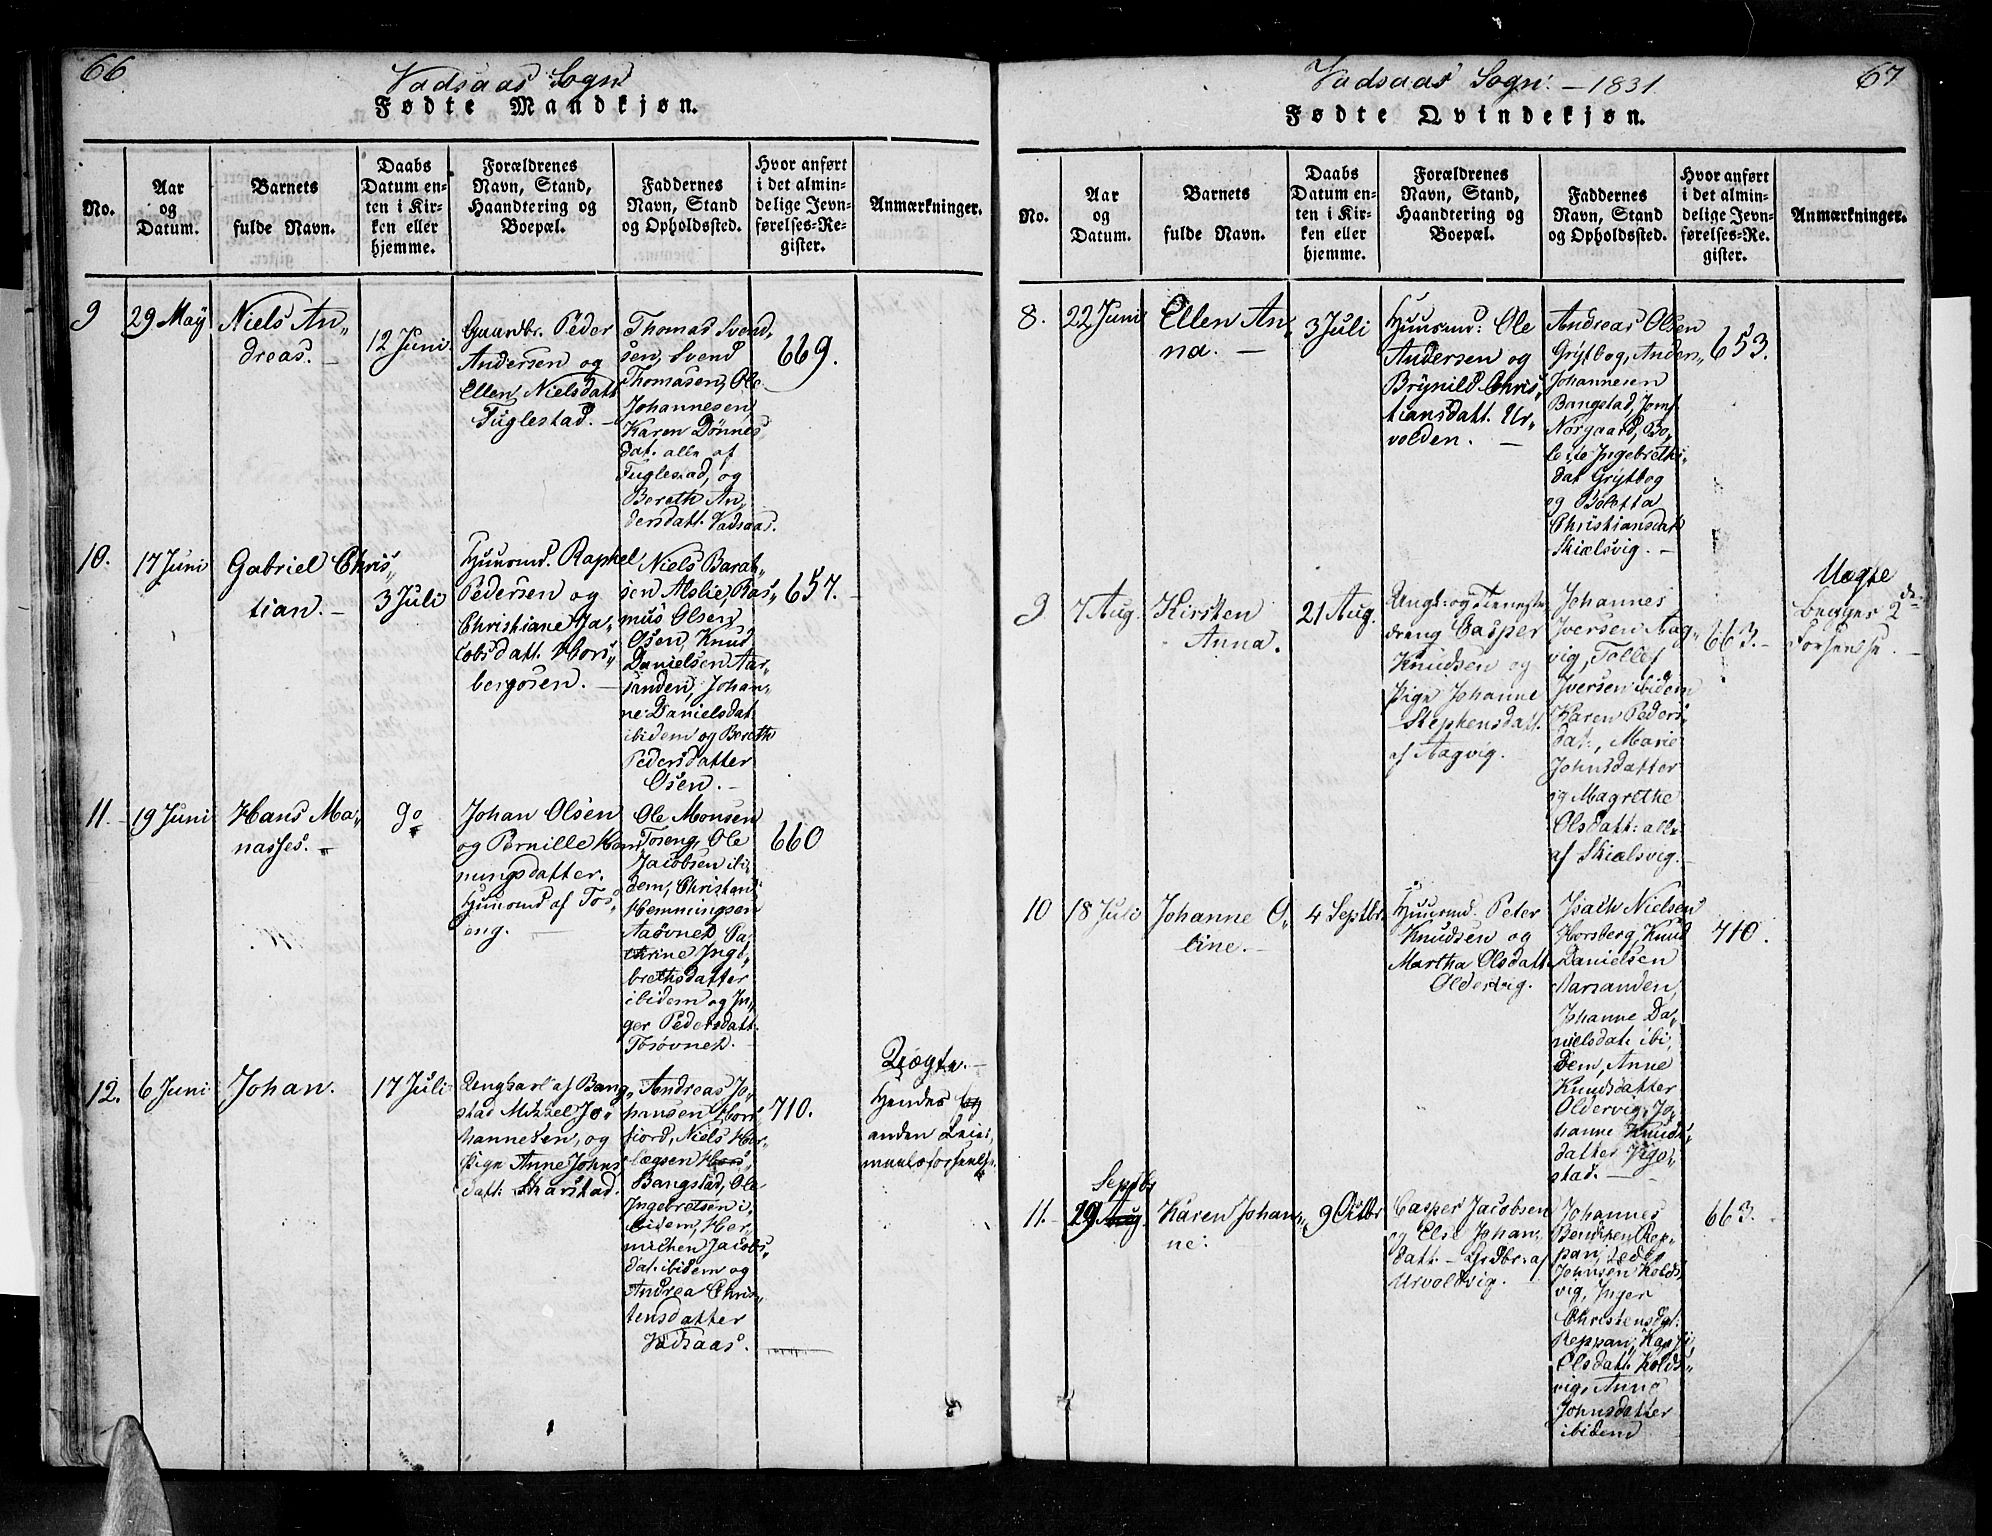 66
Vadsaas Sogn
Fødte Mandkjøn.
No.
Aar
og
Datum.
Barnets
fulde Navn.
Daabs
Datum en-
ten i Kir-
ken eller
hjemme.
Forældrenes
Navn, Stand,
Haandtering og
Boepæl.
Faddernes
Navn, Stand
og Opholdssted.
Hvor anført
i det almin-
delige Jevn-
førelses-Re-
gister.
Anmærkninger.
9
29 May
Niels An,,
dreas. -
12 Juni
Gaardbr. Peder
Andersen og
Ellen Nielsdatt
Fuglestad. -
Thomas Svend,
sen, Svend
Thomasen, Ole
Johannesen
Karen Dönnes
dat. alle af
Fuglestad, og
Bereth An,
dersdatt. Vadsaas.
669.
10.
17 Juni
Gabriel Chris,,
tian. -
3 Juli
Huusmd. Raphel
Pedersen og
Christiane Ja,
cobsdatt. Hors,
bergosen. -
Niels Barat,
sen Aslie, Ras,,
mus Olsen,
Osen, Knud
Danielsen Aar,
sanden, Johan,
ne Danielsdat
ibidem og Bereth
Pedersdatter
Osen. -
657.
11.
19 Juni
Hans Ma,,
nasses. -
do
Johan Olsen
og Pernille Hem
ningsdatter.
Huusmd af Tos,,
eng. -
Ole Monsen
Toseng, Ole
Jacobsen ibi,
dem, Christen
Hemmingsen
Ca,
thrine Inge,
brethsdatter
ibidem og In,
ger Pedersdatt.
Tosövnet. -
660
12.
6 Juni
Johan.
17 Juli
Ungkarl af Bang,
stad Mikkel Jo,
hannesen, og
Pige Anne Johns
datt: Skarstad.
Andreas Jo,
hansen Hors,
fjord, Niels Her,
lægsen Hors
Bangstad, Ole
Ingebretsen i,
bidem, Her,
michen Jacobs,
dat. ibidem og
Andrea Chris,,
tensdatter
Vadsaas.
710.
Uægte. -
Hendes og
anden Leier,
maalsforseelse.
67
Vadsaas Sogn: - 1831.
Fødte Qvindekjøn.
No.
Aar
og
Datum.
Barnets
fulde Navn.
Daabs
Datum en-
ten i Kir-
ken eller
hjemme.
Forældrenes
Navn, Stand,
Haandtering og
Boepæl.
Faddernes
Navn, Stand
og Opholdssted.
Hvor anført
i det almin-
delige Jevn-
førelses-Re-
gister.
Anmærkninger.
8.
22 Juni
Ellen An,
na. -
3 Juli
Huusmd: Ole
Andersen og
Brynild Chris,
tiansdatt. Ur,
volden. -
Andreas Olsen
Grytbog, Anders,,
Johannesen
Bangstad, Jomf.
Norgaard, Bo,
lette Ingebreths,
dat Grytbog
og Boletta
Christiansdat
Skielsvig. -
653.
9
7 Aug.
Kirsten
Anna.
21 Aug.
Ungk: og Tieneste
dreng Casper
Knudsen og
Pige Johanne
Stephensdatt.
af Aagvig.
Johannes
Iversen Aag,
vig, Tollef
Iversen ibidem
Karen Peders,
dat:, Marie
Johnsdatter
og Magrethe
Olsdatt: alle
af Skielsvig. -
663. -
Uægte
begges 2den
Forseelse. -
10
18 Juli
Johanne O,
line. -
4 Septbr.
Huusmd. Peter
Knudsen og
Martha Olsdatt
Oldervig.
Isach Nielsen
Horsberg, Knud
Danielsen
Aarsanden,
Johanne Da,
nielsdat. ibi,
dem, Anne
Knudsdatter
Oldervig, Jo,
hanne Knuds,
datter Vige,
stad. -
710.
11. -
Septbr
29 Aug.
Karen Johan,,
ne:
9 Octbr
Casper Jacobsen
og Else Johan,
datt. - Grdbr. af
Urvoldvig.
Johannes
Bendixen Rep,
pan,
Johnsen Kolds,
vig, Inger
Christensdat:
Reppan,
Olsdatt. Kolds,
vig, Anne
Johnsdatter
ibidem
663. -